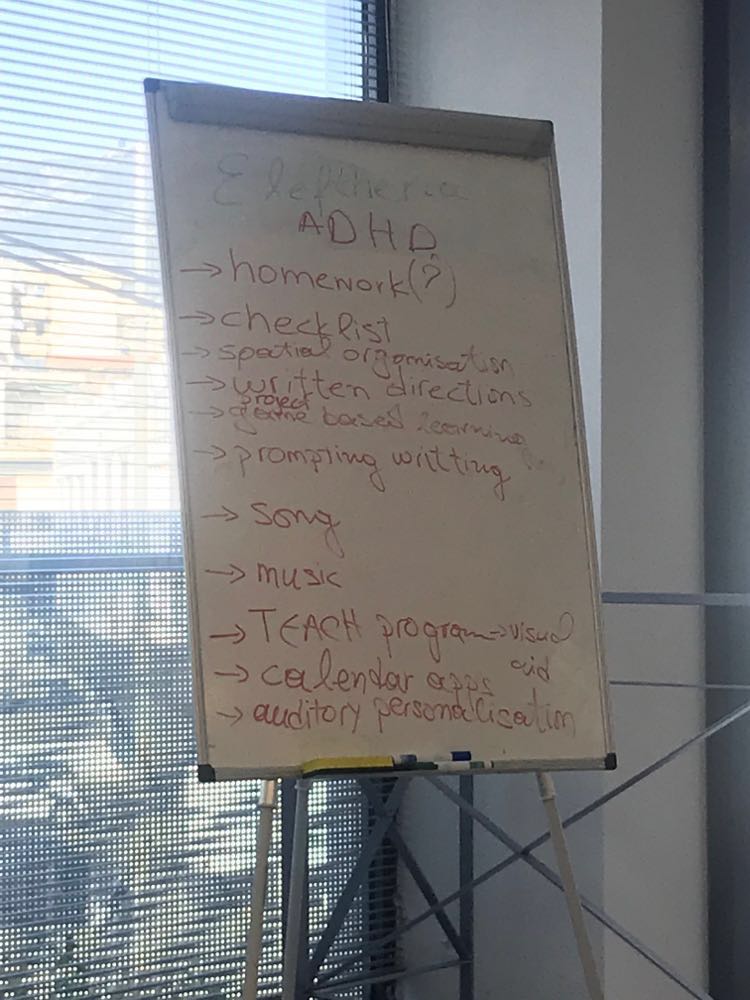 Eleftheria
ADHD
→ homework(?)
→ checklist
→ spatial organisation
→ written directions
project
→ game based learning
→ prompting writting
→ song
→ music
→ TEACH program → visual
aid
→ calendar apps
→ auditory personalisation